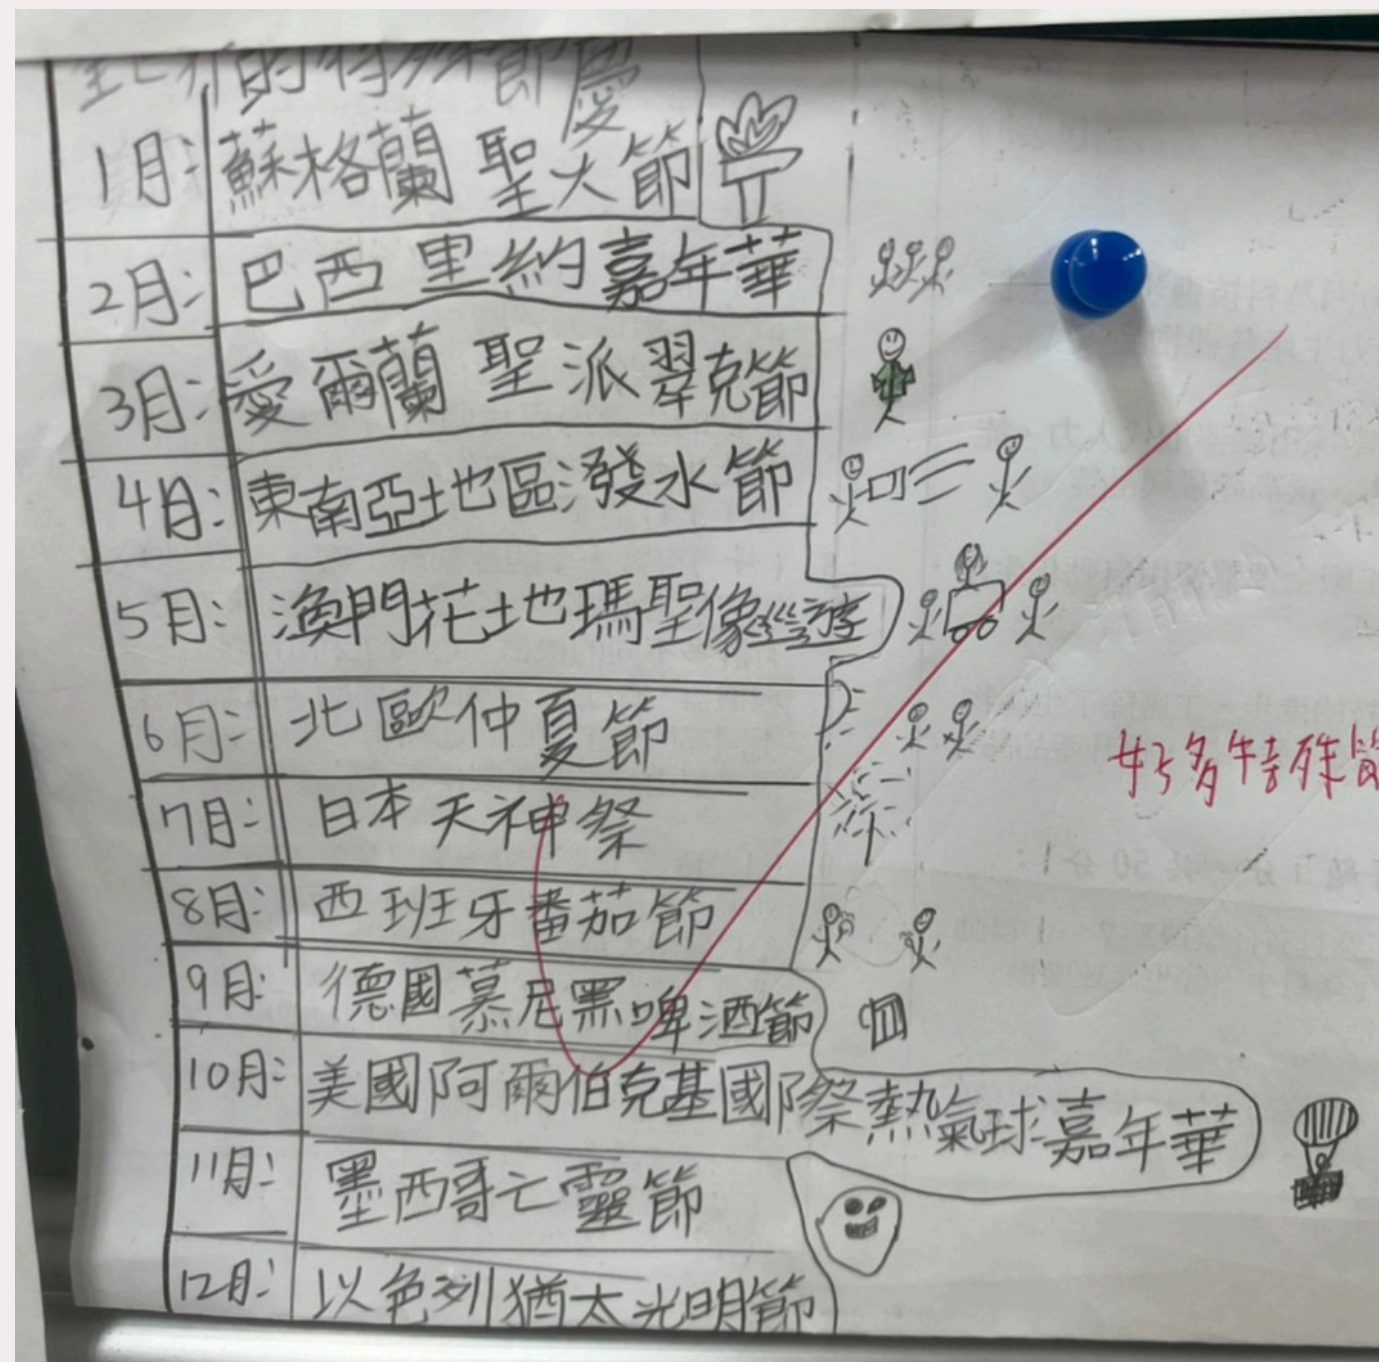 的特殊節慶
1月: 蘇格蘭 聖火節
2月: 巴西 里約嘉年華
3月: 愛爾蘭 聖派翠克節
4月: 東南亞地區潑水節
5月: 澳門花地瑪聖像巡遊
6月: 北歐仲夏節
7月: 日本天神祭
8月: 西班牙番茄節
9月: 德國慕尼黑啤酒節
10月: 美國阿爾伯克基國際熱氣球嘉年華
11月: 墨西哥亡靈節
12月: 以色列猶太光明節
好多特殊節